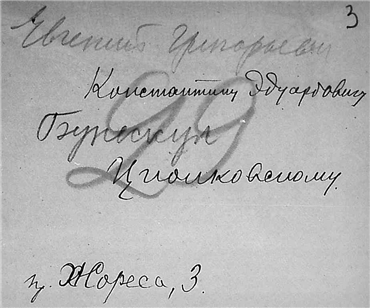 3
Евгений Григорьевич
Константину Эдуардовичу
29
Бунескул
Циолковскому.
Жореса, 3.